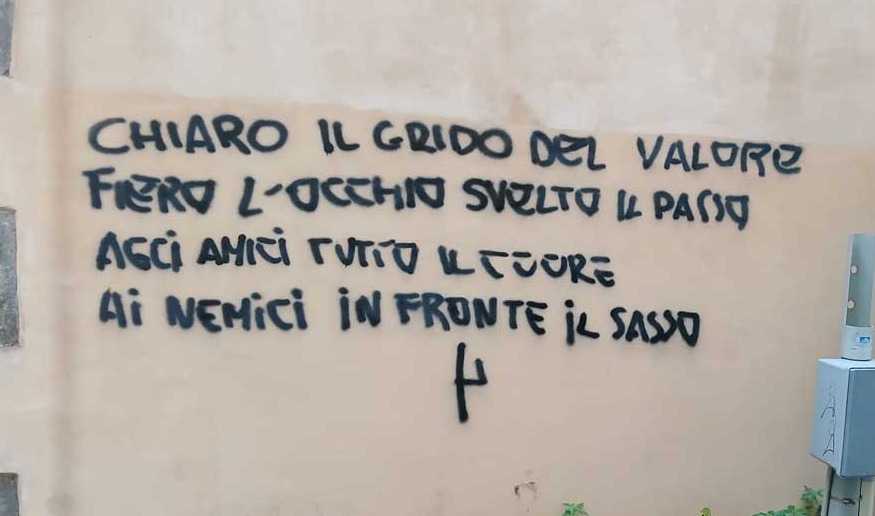 CHIARO IL GRIDO DEL VALORE
FIERO L'OCCHIO SVELTO IL PASSO
AGLI AMICI TUTTO IL CUORE
AI NEMICI IN FRONTE IL SASSO